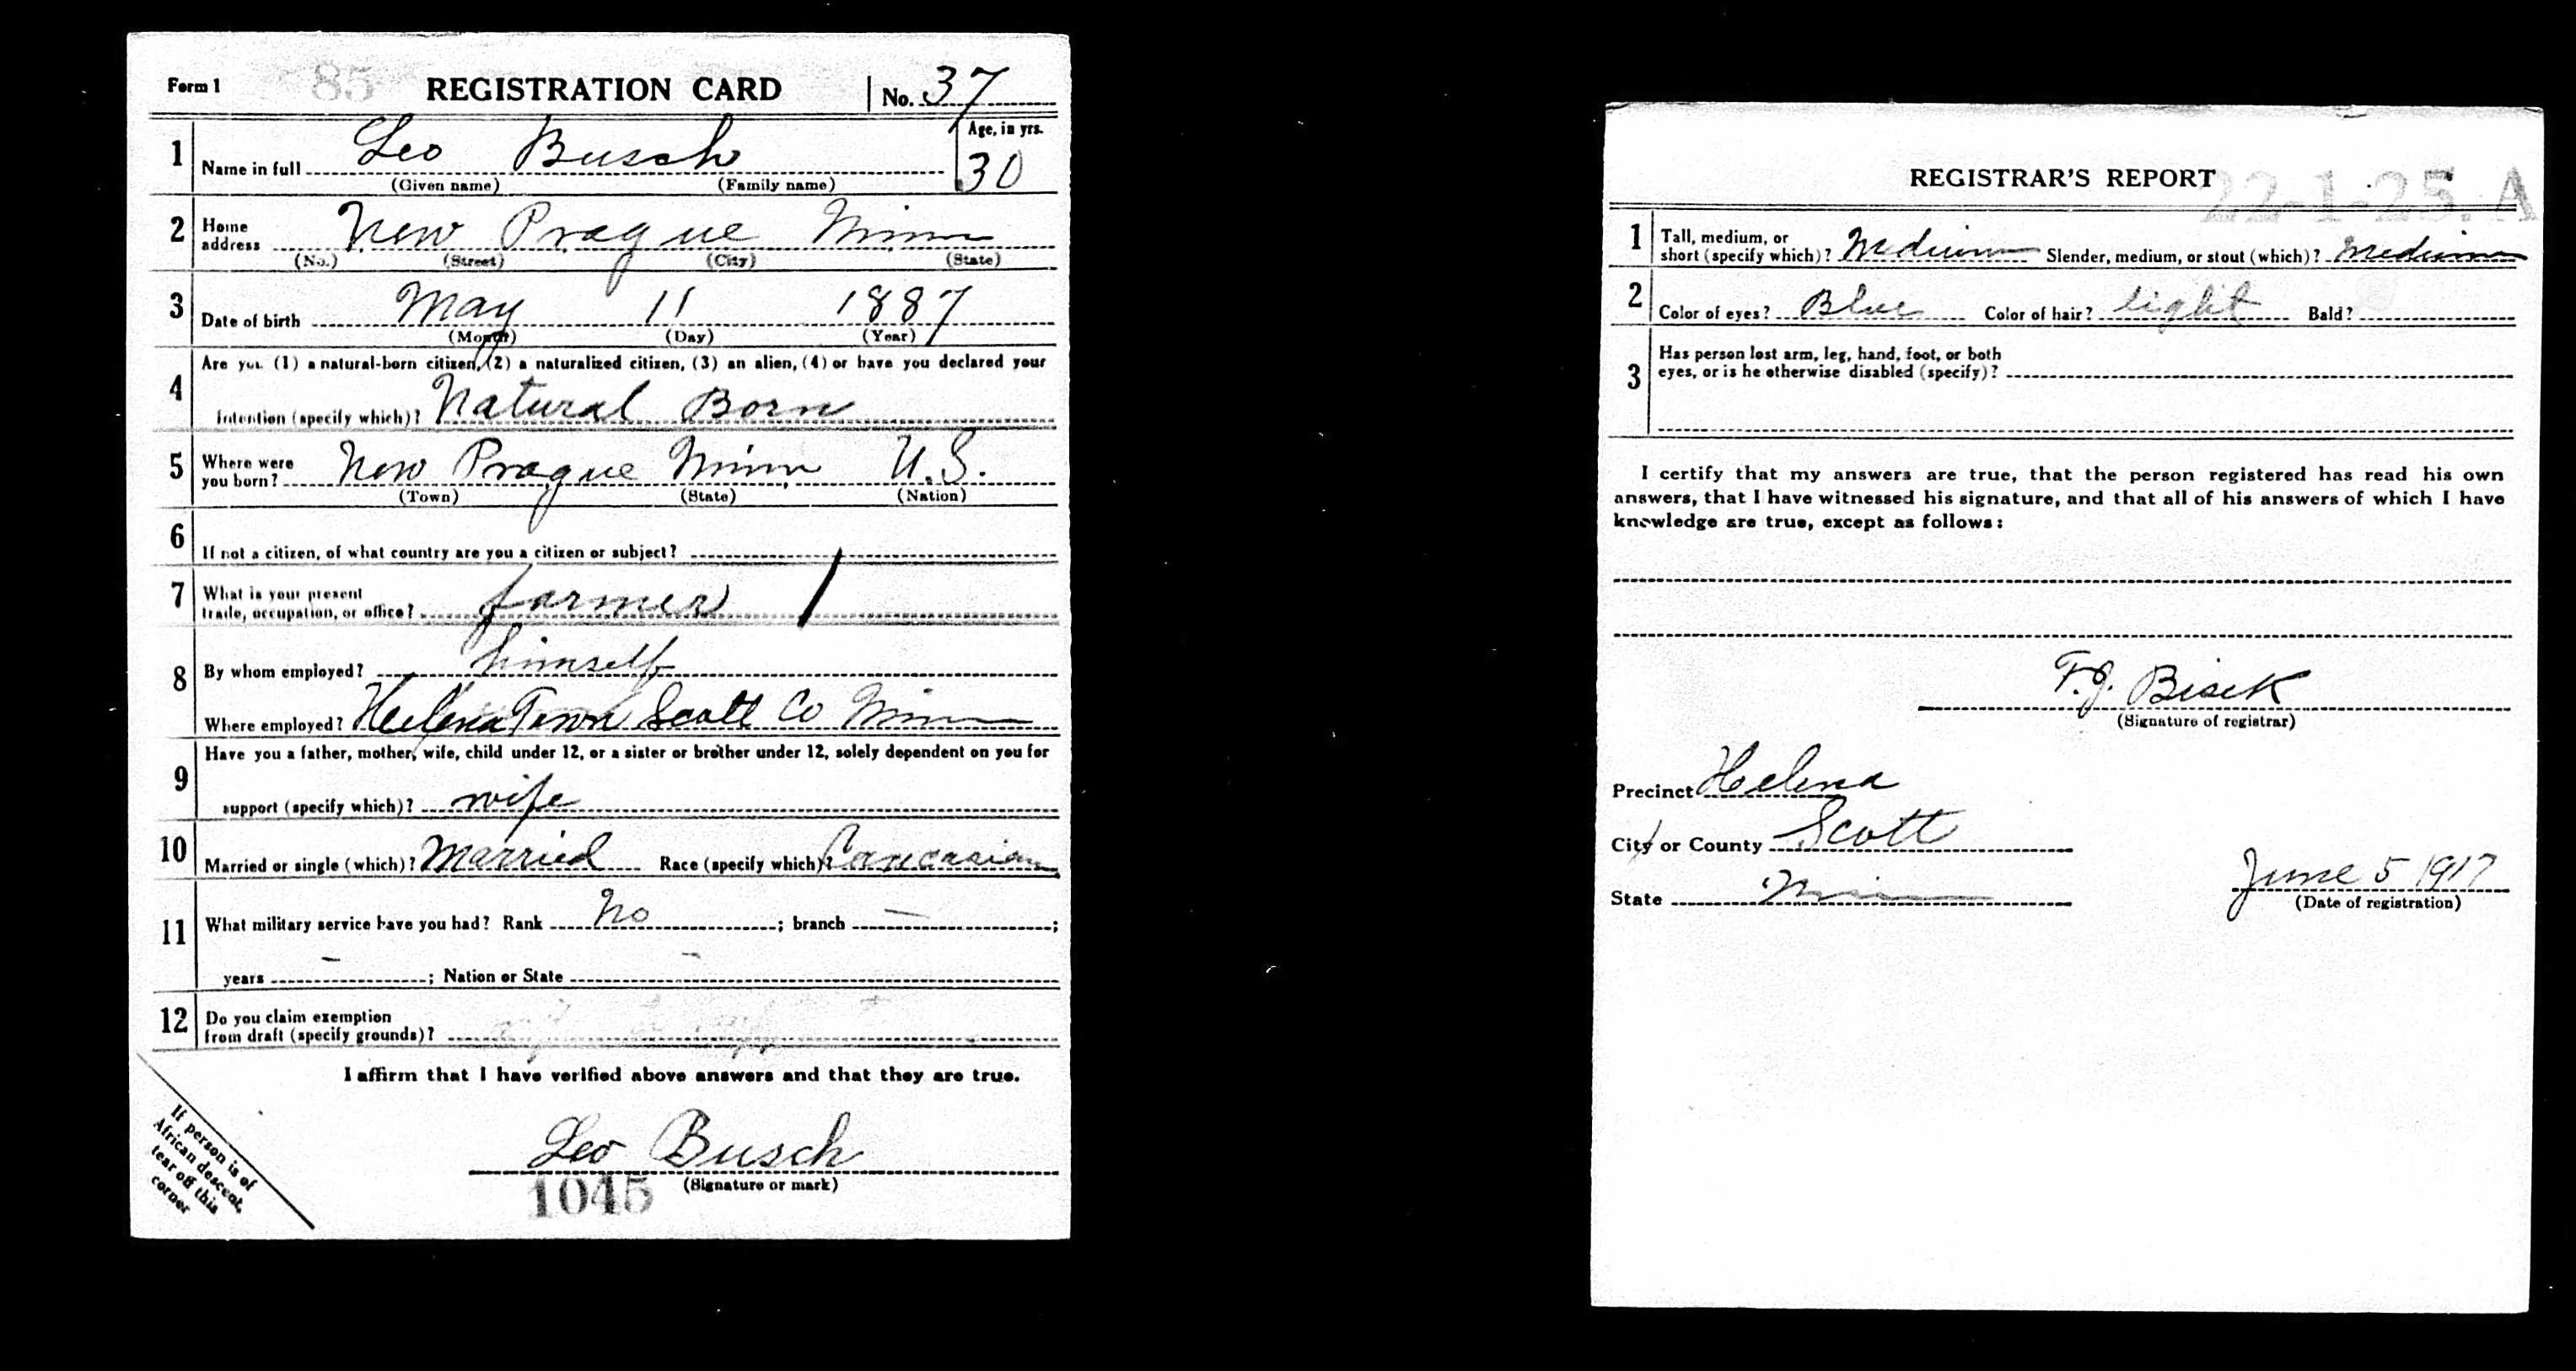 Form 1 85 REGISTRATION CARD No. 37
1 Name in full Leo Busch Age, in yrs. 30
(Given name) (Family name)
2 Home address New Prague Minn
(No.) (Street) (City) (State)
3 Date of birth May 11 1887
(Month) (Day) (Year)
Are you (1) a natural-born citizen, (2) a naturalized citizen, (3) an alien, (4) or have you declared your
4 intention (specify which)? Natural Born
5 Where were you born? New Prague Minn U.S.
(Town) (State) (Nation)
6 If not a citizen, of what country are you a citizen or subject?
7 What is your present trade, occupation, or office? farmer
8 By whom employed? himself
Where employed? Helena Town Scott Co Minn
Have you a father, mother, wife, child under 12, or a sister or brother under 12, solely dependent on you for
9 support (specify which)? wife
10 Married or single (which)? Married Race (specify which)? Caucasian
11 What military service have you had? Rank No ; branch — ;
years - ; Nation or State -
12 Do you claim exemption from draft (specify grounds)?
I affirm that I have verified above answers and that they are true.
Leo Busch
1045 (Signature or mark)
If person is of
African descent,
tear off this
corner
REGISTRAR'S REPORT
22-1-25. A
1 Tall, medium, or short (specify which)? Medium Slender, medium, or stout (which)? medium
2 Color of eyes? Blue Color of hair? light Bald?
3 Has person lost arm, leg, hand, foot, or both
eyes, or is he otherwise disabled (specify)?
I certify that my answers are true, that the person registered has read his own
answers, that I have witnessed his signature, and that all of his answers of which I have
knowledge are true, except as follows:
F.J. Bisek
(Signature of registrar)
Precinct Helena
City or County Scott
State Minn June 5 1917
(Date of registration)